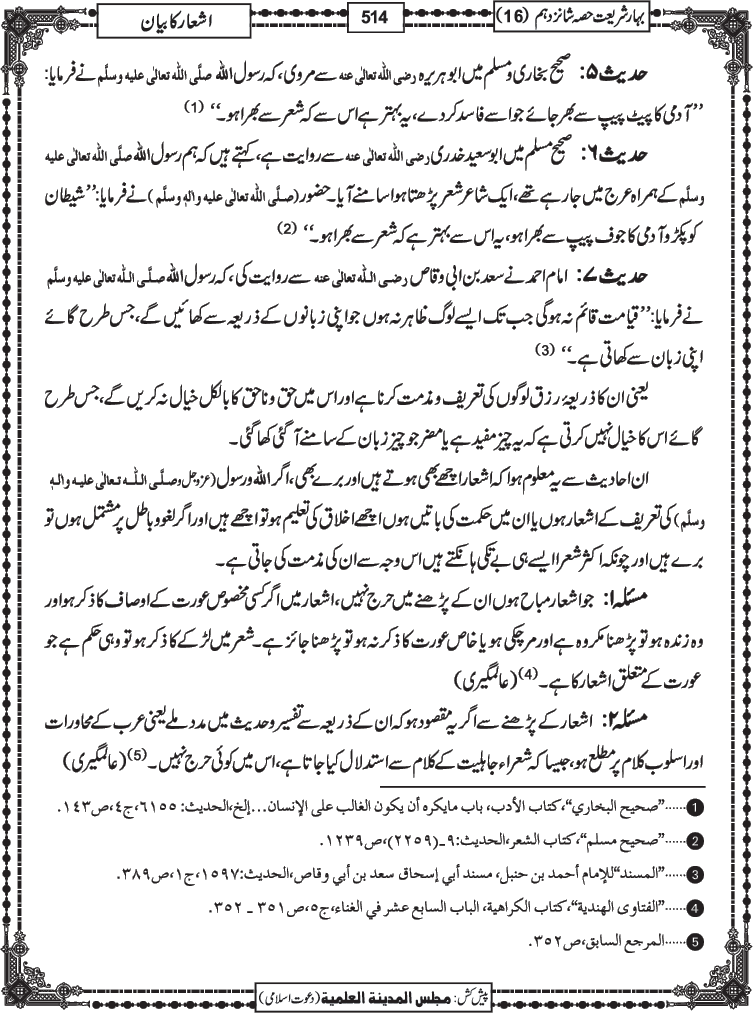 بہارِ شریعت حصہ شانزدہم (16)
514
اشعار کا بیان
حدیث ۵: صحیح بخاری و مسلم میں ابوہریرہ رضی اللہ تعالٰی عنہ سے مروی، کہ رسول اللہ صلَّی اللہ تعالٰی علیہ وسلَّم نے فرمایا:
’’آدمی کا پیٹ پیپ سے بھر جائے جو اسے فاسد کردے، یہ بہتر ہے اس سے کہ شعر سے بھرا ہو۔‘‘ (1)
حدیث ۶: صحیح مسلم میں ابوسعید خدری رضی اللہ تعالٰی عنہ سے روایت ہے، کہتے ہیں کہ ہم رسول اللہ صلَّی اللہ تعالٰی علیہ
وسلَّم کے ہمراہ عرج میں جارہے تھے، ایک شاعر شعر پڑھتا ہوا سامنے آیا۔ حضور (صلَّی اللہ تعالٰی علیہ واٰلہٖ وسلَّم) نے فرمایا: ’’شیطان
کو پکڑو آدمی کا جوف پیپ سے بھرا ہو، یہ اس سے بہتر ہے کہ شعر سے بھرا ہو۔‘‘ (2)
حدیث ۷: امام احمد نے سعد بن ابی وقاص رضی اللہ تعالٰی عنہ سے روایت کی، کہ رسول اللہ صلَّی اللہ تعالٰی علیہ وسلَّم
نے فرمایا: ’’قیامت قائم نہ ہوگی جب تک ایسے لوگ ظاہر نہ ہوں جو اپنی زبانوں کے ذریعہ سے کھائیں گے، جس طرح گائے
اپنی زبان سے کھاتی ہے۔‘‘ (3)
یعنی ان کا ذریعۂ رزق لوگوں کی تعریف و مذمت کرنا ہے اور اس میں حق و ناحق کا بالکل خیال نہ کریں گے، جس طرح
گائے اس کا خیال نہیں کرتی ہے کہ یہ چیز مفید ہے یا مضر جو چیز زبان کے سامنے آگئی کھا گئی۔
ان احادیث سے یہ معلوم ہوا کہ اشعار اچھے بھی ہوتے ہیں اور برے بھی، اگر اللہ و رسول (عزوجل وصلَّی اللہ تعالٰی علیہ واٰلہٖ
وسلَّم) کی تعریف کے اشعار ہوں یا ان میں حکمت کی باتیں ہوں اچھے اخلاق کی تعلیم ہو تو اچھے ہیں اور اگر لغو و باطل پر مشتمل ہوں تو
برے ہیں اور چونکہ اکثر شعرا ایسے ہی بے تکی ہانکتے ہیں اس وجہ سے ان کی مذمت کی جاتی ہے۔
مسئلہ ۱: جو اشعار مباح ہوں ان کے پڑھنے میں حرج نہیں، اشعار میں اگر کسی مخصوص عورت کے اوصاف کا ذکر ہو اور
وہ زندہ ہو تو پڑھنا مکروہ ہے اور مرچکی ہو یا خاص عورت کا ذکر نہ ہو تو پڑھنا جائز ہے۔ شعر میں لڑکے کا ذکر ہو تو وہی حکم ہے جو
عورت کے متعلق اشعار کا ہے۔ (4) (عالمگیری)
مسئلہ ۲: اشعار کے پڑھنے سے اگر یہ مقصود ہو کہ ان کے ذریعہ سے تفسیر و حدیث میں مدد ملے یعنی عرب کے محاورات
اور اسلوب کلام پر مطلع ہو، جیسا کہ شعراء جاہلیت کے کلام سے استدلال کیا جاتا ہے، اس میں کوئی حرج نہیں۔ (5) (عالمگیری)
1 ......”صحیح البخاري“، کتاب الأدب، باب مایکرہ أن یکون الغالب علی الإنسان...إلخ، الحدیث: ٦١٥٥، ج٤، ص١٤٣.
2 ......”صحیح مسلم“، کتاب الشعر، الحدیث: ٩۔(٢٢٥٩)، ص١٢٣٩.
3 ......”المسند“ للإمام أحمد بن حنبل، مسند أبي إسحاق سعد بن أبي وقاص، الحدیث: ١٥٩٧، ج١، ص٣٨٩.
4 ......”الفتاوی الھندیة“، کتاب الکراھیة، الباب السابع عشر في الغناء، ج٥، ص٣٥١ ۔ ٣٥٢.
5 ......المرجع السابق، ص٣٥٢.
پیش کش: مجلس المدینۃ العلمیۃ (دعوتِ اسلامی)